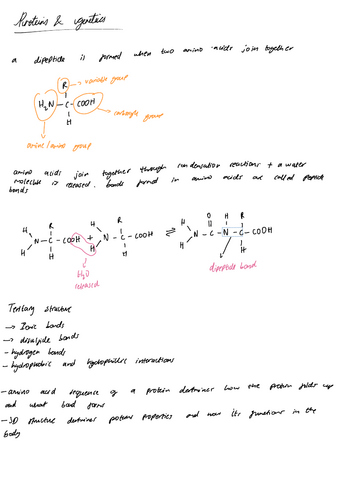 Proteins & genetics
a dipeptide is formed when two amino acids join together
R → variable group
H₂N - C - COOH
H
carboxylic group
amine/amino group
amino acids join together through condensation reactions + a water
molecule is released. bonds formed in amino acids are called peptide
bonds
H R H R O H R
N - C - COOH + N - C - COOH ⇌ N - C - C - N - C - COOH
H H H H H H
H₂O
released
dipeptide bond
Tertiary structure
→ Ionic bonds
→ disulphide bonds
- hydrogen bonds
- hydrophobic and hydrophilic interactions
- amino acid sequence of a protein determines how the protein folds up
and what bond forms
- 3D structure determines proteins properties and how its functions in the
body